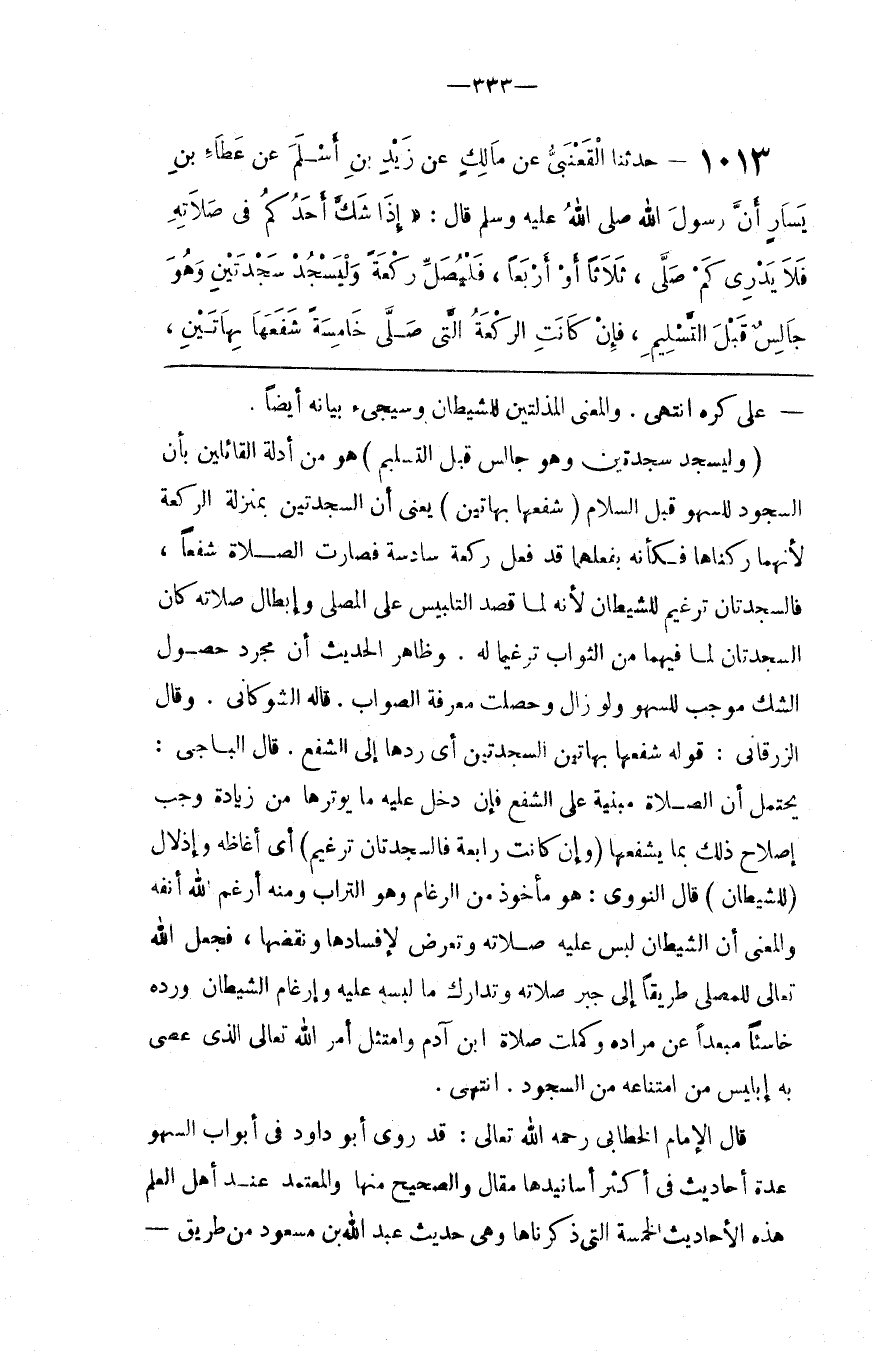 —٣٣٣—
١٠١٣ – حدثنا الْقَعْنَبِىُّ عن مَالِكٍ عن زَيْدِ بنِ أَسْلَمَ عن عَطَاءِ بنِ
يَسَارٍ أَنَّ رسولَ الله صلى اللهُ عليه وسلم قال : « إِذَا شَكَّ أَحَدُكُمُ فى صَلَاتهِ
فَلَا يَدْرِى كَمْ صَلَّى ، ثَلَاثاً أَوْ أَرْبَعاً ، فَلْيُصَلِّ رَكْعَةً وَلْيَسْجُدْ سَجْدَتَيْنِ وَهُوَ
جَالِسٌ قَبْلَ التَّسْلِيمِ ، فَإِنْ كَانَتِ الركْعَةُ الَّتى صَلَّى خَامِسَةً شَفَعَهَا بِهاَتَيْنِ ،
— على كره انتهى . والمعنى المذلتين للشيطان وسيجىء بيانه أيضاً .
( وليسجد سجدتين وهو جالس قبل التسليم ) هو من أدلة القائلين بأن
السجود للسهو قبل السلام ( شفعها بهاتين ) يعنى أن السجدتين بمنزلة الركعة
لأنهما ركناها فكأنه بفعلهما قد فعل ركعة سادسة فصارت الصلاة شفعاً ،
فالسجدتان ترغيم للشيطان لأنه لما قصد التلبيس على المصلى وإبطال صلاته كان
السجدتان لما فيهما من الثواب ترغيما له . وظاهر الحديث أن مجرد حصول
الشك موجب للسهو ولو زال وحصلت معرفة الصواب . قاله الشوكانى . وقال
الزرقانى : قوله شفعها بهاتين السجدتين أى ردها إلى الشفع . قال الباجى :
يحتمل أن الصلاة مبنية على الشفع فإن دخل عليه ما يوترها من زيادة وجب
إصلاح ذلك بما يشفعها (وإن كانت رابعة فالسجدتان ترغيم) أى أغاظه وإذلال
(للشيطان ) قال النووى : هو مأخوذ من الرغام وهو التراب ومنه أرغم الله أنفه
والمعنى أن الشيطان لبس عليه صلاته وتعرض لإفسادها ونقضها ، فجعل الله
تعالى للمصلى طريقاً إلى جبر صلاته وتدارك ما لبسه عليه وإرغام الشيطان ورده
خاسئاً مبعداً عن مراده وكملت صلاة ابن آدم وامتثل أمر الله تعالى الذى عصى
به إبليس من امتناعه من السجود . انتهى .
قال الإمام الخطابى رحمه الله تعالى : قد روى أبو داود فى أبواب السهو
عدة أحاديث فى أكثر أسانيدها مقال والصحيح منها والمعتمد عند أهل العلم
هذه الأحاديث الخمسة التى ذكرناها وهى حديث عبد الله بن مسعود من طريق —